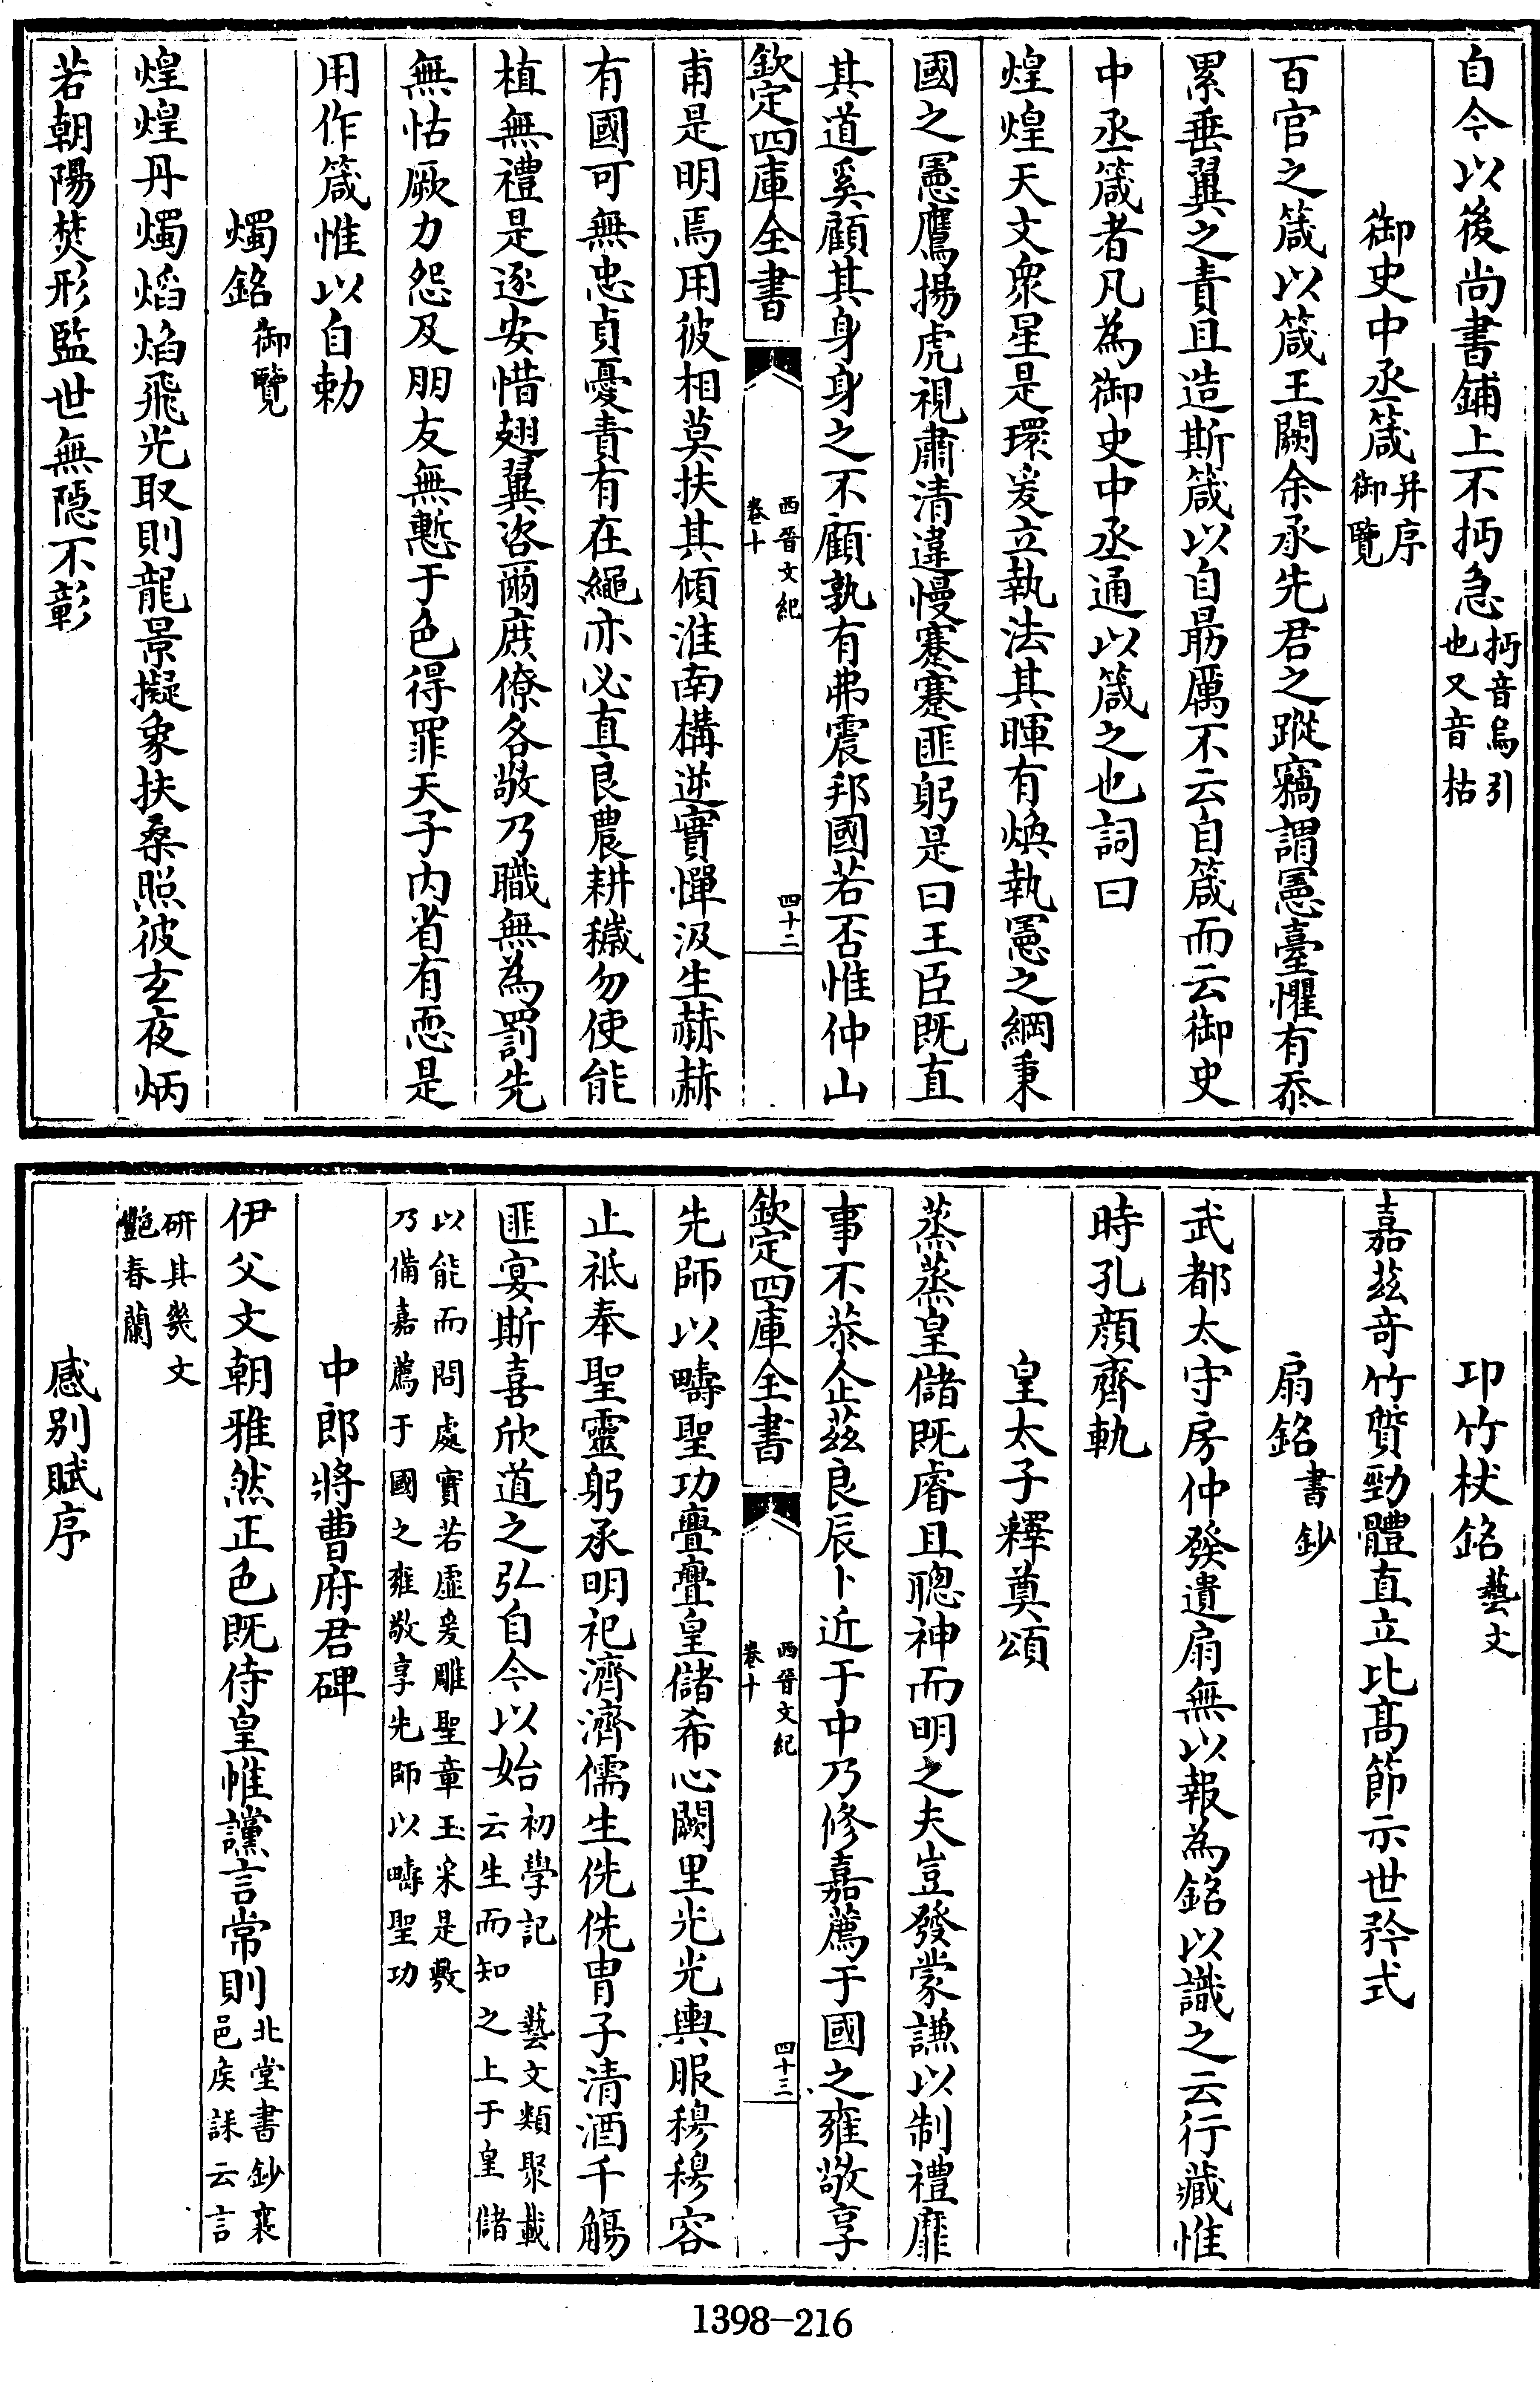 自今以後尚書鋪上不抲急抲音烏引也又音枯
御史中丞箴并序御覽
百官之箴以箴王闕余承先君之蹤竊謂憲臺懼有忝
累垂翼之責且造斯箴以自勗厲不云自箴而云御史
中丞箴者凡為御史中丞通以箴之也詞曰
煌煌天文衆星是環爰立執法其暉有煥執憲之綱秉
國之憲鷹揚虎視肅清違慢蹇蹇匪躬是曰王臣既直
其道奚顧其身身之不顧孰有弗震邦國若否惟仲山
欽定四庫全書
西晉文紀
卷十
四十二
甫是明焉用彼相莫扶其傾淮南構逆實憚汲生赫赫
有國可無忠貞憂責有在繩亦必直良農耕穢勿使能
植無禮是逐安惜翅翼咨爾庶僚各敬乃職無為罰先
無怙厥力怨及朋友無慙于色得罪天子內省有恧是
用作箴惟以自勅
燭銘御覽
煌煌丹燭焰焰飛光取則龍景擬象扶桑照彼玄夜炳
若朝陽焚形監世無隱不彰
卭竹杖銘藝文
嘉茲竒竹質勁體直立比髙節示世矜式
扇銘書鈔
武都太守房仲發遺扇無以報為銘以識之云行藏惟
時孔顏齊軌
皇太子釋奠頌
蒸蒸皇儲既睿且聰神而明之夫豈發蒙謙以制禮靡
事不恭企茲良辰卜近于中乃修嘉薦于國之雍敬享
欽定四庫全書
西晉文紀
卷十
四十三
先師以疇聖功亹亹皇儲希心闕里光光輿服穆穆容
止祗奉聖靈躬承明祀濟濟儒生侁侁胄子清酒千觴
匪宴斯喜欣道之弘自今以始初學記云生而知藝文類聚載之上于皇儲
以能而問處實若虛爰雕聖章玉采是敷乃備嘉薦于國之雍敬享先師以疇聖功
中郎將曹府君碑
伊父文朝雅然正色既侍皇帷讜言常則北堂書鈔襄邑侯誄云言
研其幾文艷春蘭
感別賦序
1398-216